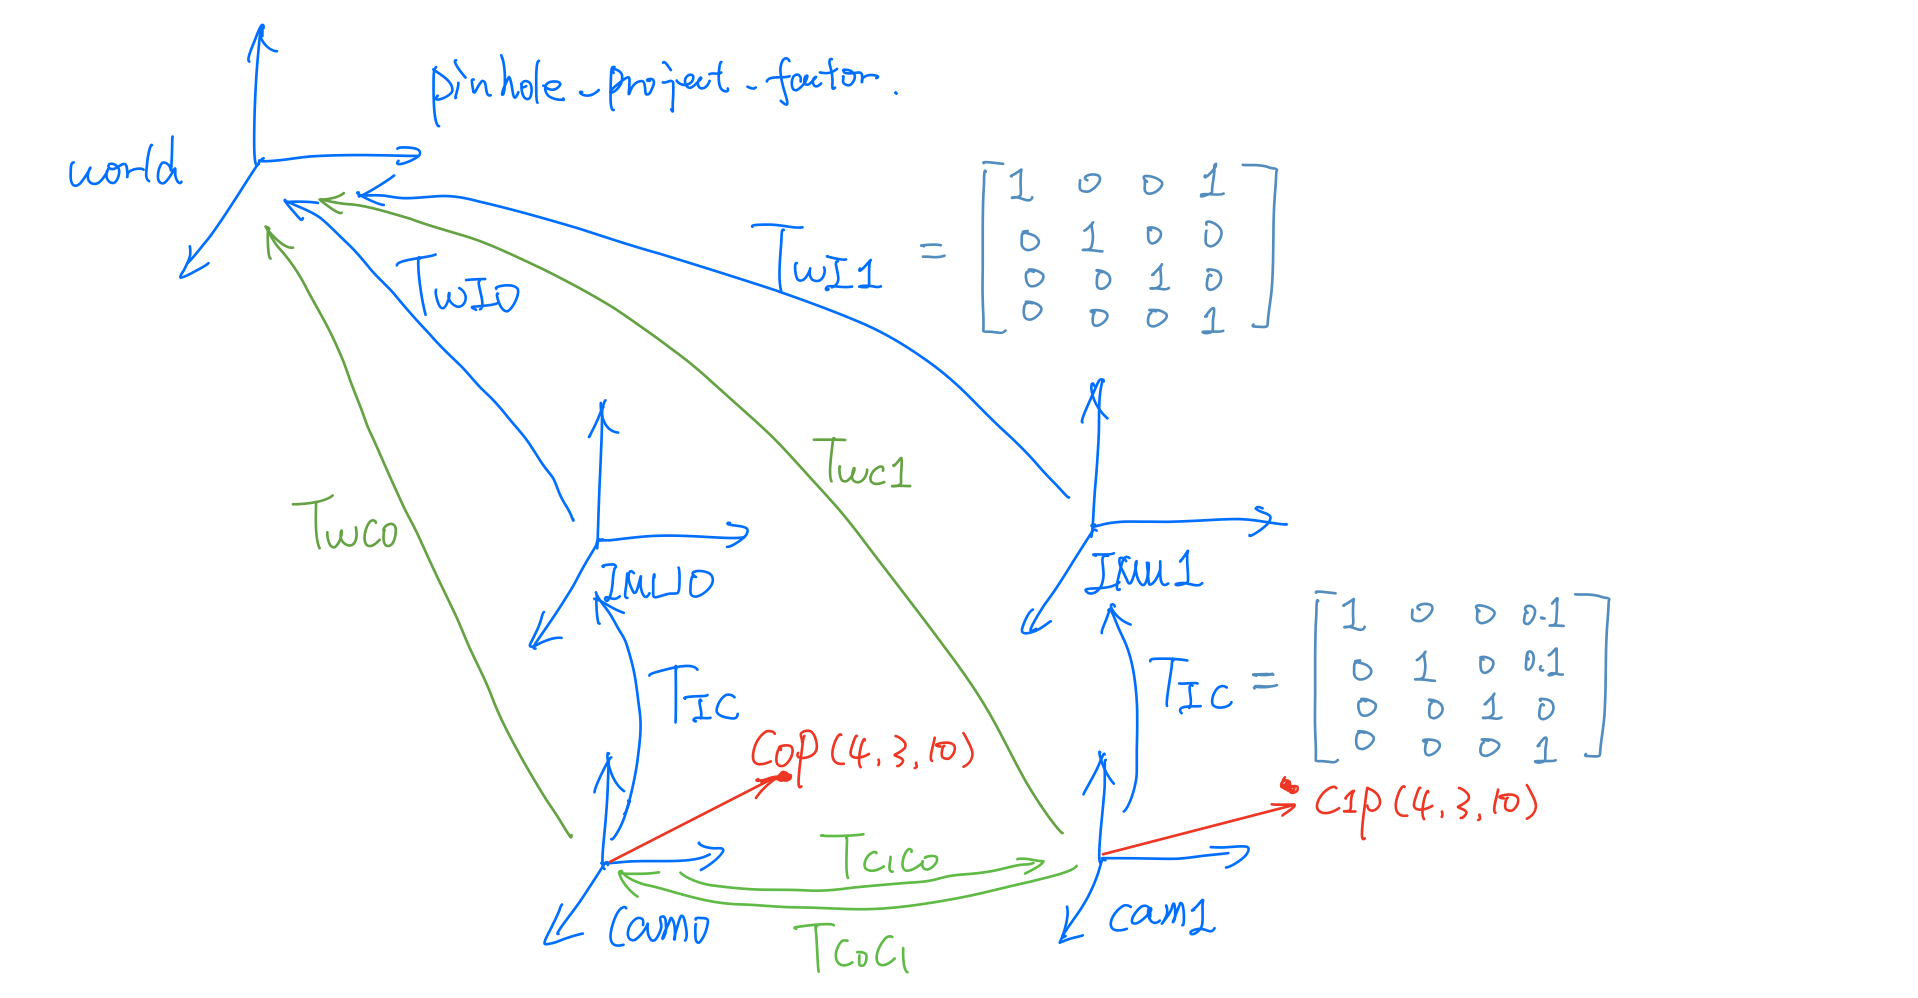 pinhole-project-factor.
world
TWI0
TWI1 = [1 0 0 1
0 1 0 0
0 0 1 0
0 0 0 1]
TWC1
TWC0
IMU0
IMU1
TIC
TIC = [1 0 0 0.1
0 1 0 0.1
0 0 1 0
0 0 0 1]
C0P(4,3,10)
C1P(4,3,10)
TC1C0
cam0
cam1
TC0C1